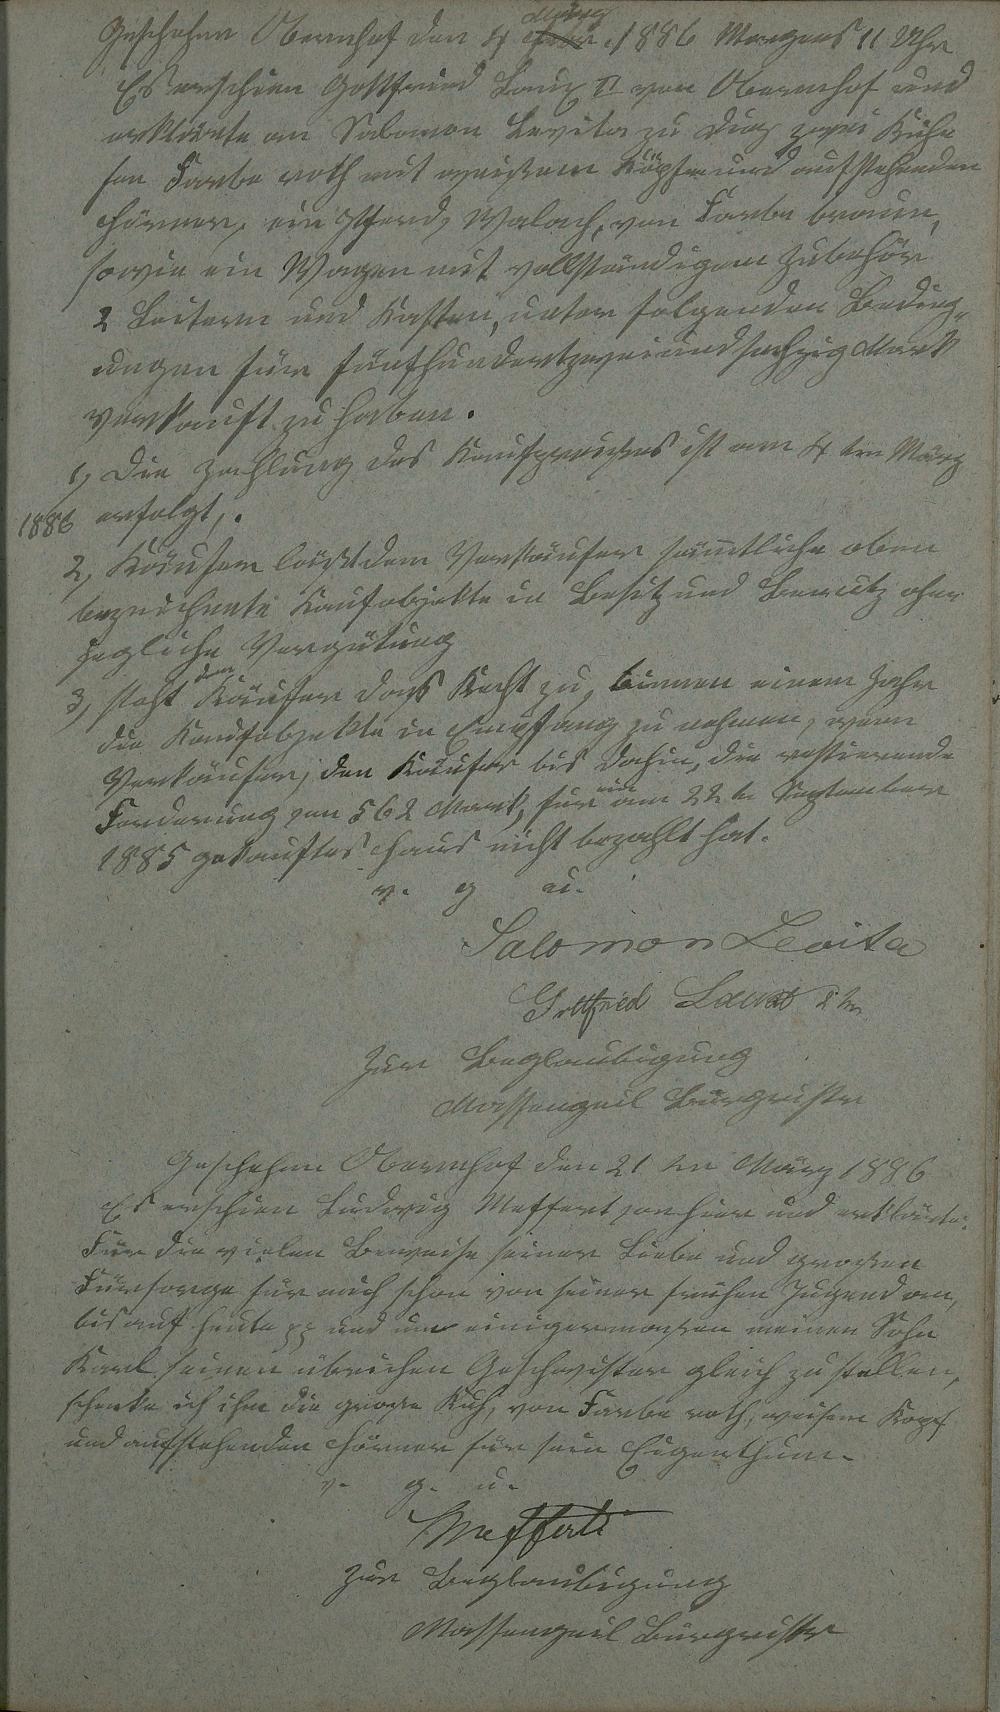 Geschehen Obernhof den 4 März 1886 Morgens 11 Uhr
Es erschien Gottfried Laux II von Obernhof und
erklärte an Salomon Levita zu Diez zwei Kühe
von Farbe roth mit weißem Köpfen und aufstehenden
Hörner, ein Pferd, Walach, von Farbe braun,
sowie ein Wagen mit vollständigem Zubehör
2 Leitern und Kasten, unter folgenden Beding„
ungen für fünfhundertzweiundsechzig Mark
verkauft zu haben.
1, Die Zahlung des Kaufpreises ist am 4ten März
1886 erfolgt,.
2, Käufer läßt dem Verkäufer sämtliche oben
bezeichnete Kaufobjekte in Besitz und Benutz ohne
jegliche Vergütung
3, steht dem Käufer das Recht zu, binnen einem Jahr
die Kaufobjekte in Empfang zu nehmen, wenn
Verkäufer, den Käufer bis dahin, die restierende
Forderung von 562 Mark, für ein am 22ten September
1885 gekauftes Haus nicht bezahlt hat.
v. g u.
Salomon Levita
Gottfried Laux 2ter
Zur Beglaubigung
Massengeil Bürgmstr
Geschehen Obernhof den 21ten März 1886
Es erschien Ludwig Meffert von hier und erklärte:
Für die vielen Beweise seiner Liebe und großen
Fürsorge für mich schon von seiner frühen Jugend an,
bis auf heute pp und um einigermaßen meinen Sohn
Karl seinen übrichen Geschwister gleich zu stellen,
schenke ich ihm die große Kuh, von Farbe roth, weisem Kopf
und aufstehenden Hörner für sein Eigenthum.
v. g. u.
Meffert
Zur Beglaubigung
Massengeil Bürgmstr